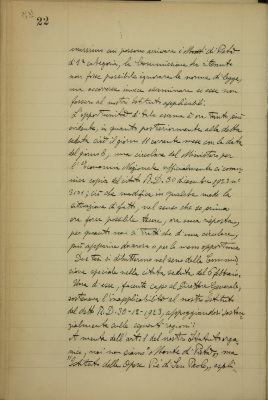 22
nessuno mi possono arrivare i Monti di Pietà
di 1ª categoria, la Commissione ha ritenuto
non fosse possibile ignorare le norme di legge,
ma occorresse invece esaminare se esse non
fossero al nostro Istituto applicabili.
L'opportunità di tale esame è ora tanto più
evidente, in quanto posteriormente alla detta
seduta cioè il giorno 11 corrente mese con la data
del giorno 6, una circolare del Ministero per
l'Economia Nazionale ufficialmente ci comu-
nica copia del citato R.D. 30 dicembre 1923 n°
3051; ciò che modifica in qualche modo la
situazione di fatto, nel senso che se prima
era forse possibile tacere, ora una risposta,
per quanto non si tratti che di una circolare,
può apparire doverosa o per lo meno opportuna.
Due tesi si dibatterono nel seno della Commis-
sione speciale nella citata seduta del 9 febbraio.
Una di esse, facente capo al Direttore Generale,
sosteneva l'inapplicabilità al nostro Istituto
del detto R.D. 30-12-1923, appoggiandosi sostan-
zialmente sulle seguenti ragioni:
A mente dell'art. 1 del nostro Statuto orga-
nico, noi non siamo "Monte di Pietà", ma
"Istituto delle Opere Pie di San Paolo,